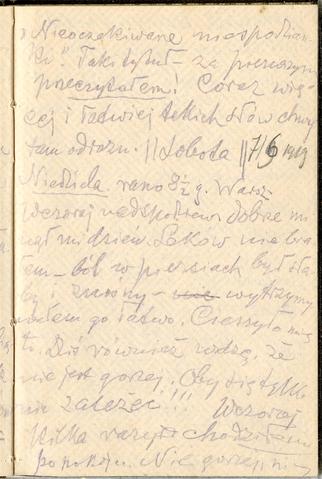 „Nieoczekiwane niespodzian
ki". Taki tytuł – za pierwszym
przeczytałem! Coraz wię
cej i łatwiej takich słów chwy
tam odrazu. || Sobota || 7/6 1919
Niedziela. rano 8½ g. Warsz
Wczoraj nadspodziew dobrze mi
nął mi dzień. Leków nie bra
łem – ból w piersiach był sła
by i znośny – wytrzymy
wałem go łatwo. Cieszyło mię
to. Dziś również widzę, że
nie jest gorzej. Oby się tylko
zależeć!!! Wczoraj
kilka razy chodziłem
po pokoju. Nie gorzej